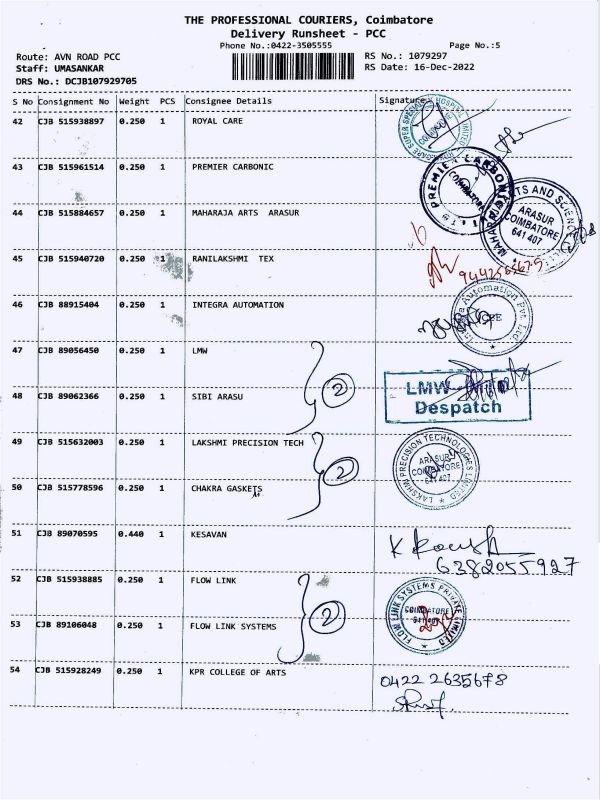 THE PROFESSIONAL COURIERS, Coimbatore
Delivery Runsheet - PCC
Phone No.:0422-3505555 Page No.:5
Route: AVN ROAD PCC RS No.: 1079297
Staff: UMASANKAR RS Date: 16-Dec-2022
DRS No.: DCJB107929705
S No Consignment No Weight PCS Consignee Details Signature
42 CJB 515938897 0.250 1 ROYAL CARE
43 CJB 515961514 0.250 1 PREMIER CARBONIC
PREMIER CARBONIC
COIMBATORE
44 CJB 515884657 0.250 1 MAHARAJA ARTS ARASUR
ARTS AND SCIENCE
ARASUR
COIMBATORE
641 407
45 CJB 515940720 0.250 1 RANILAKSHMI TEX
46 CJB 88915404 0.250 1 INTEGRA AUTOMATION
Automation Pvt. Ltd.
47 CJB 89056450 0.250 1 LMW
2
48 CJB 89062366 0.250 1 SIBI ARASU
LMW
Despatch
49 CJB 515632003 0.250 1 LAKSHMI PRECISION TECH
LAKSHMI PRECISION TECHNOLOGIES LIMITED
ARASUR
COIMBATORE
641 407
2
50 CJB 515778596 0.250 1 CHAKRA GASKETS
51 CJB 89070595 0.440 1 KESAVAN
6382055927
52 CJB 515938885 0.250 1 FLOW LINK
FLOW LINK SYSTEMS PRIVATE LIMITED
COIMBATORE
2
53 CJB 89106048 0.250 1 FLOW LINK SYSTEMS
54 CJB 515928249 0.250 1 KPR COLLEGE OF ARTS
0422 2635678